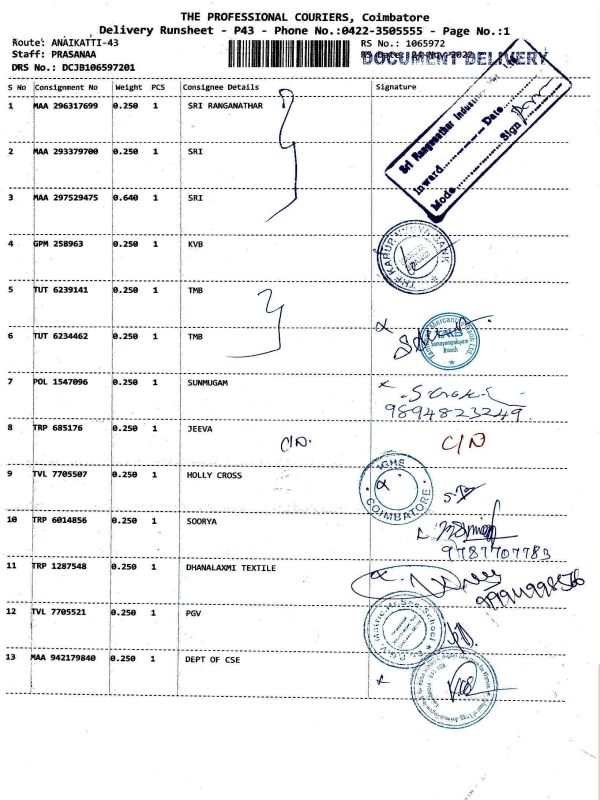 THE PROFESSIONAL COURIERS, Coimbatore
Delivery Runsheet - P43 - Phone No.:0422-3505555 - Page No.:1
Route: ANAIKATTI-43
RS No.: 1065972
Staff: PRASANAA
RS Date: 24 Nov 2022
DOCUMENT DELIVERY
DRS No.: DCJB106597201
S No Consignment No Weight PCS Consignee Details Signature
1 MAA 296317699 0.250 1 SRI RANGANATHAR
Sri Ranganathar Industries
Inward Date
Mode Sign
2 MAA 293379700 0.250 1 SRI
3 MAA 297529475 0.640 1 SRI
4 GPM 258963 0.250 1 KVB
THE KARUR VYSYA BANK
5 TUT 6239141 0.250 1 TMB
6 TUT 6234462 0.250 1 TMB
Branch
7 POL 1547096 0.250 1 SUNMUGAM
9894823249
8 TRP 685176 0.250 1 JEEVA
C/N. C/N
9 TVL 7705507 0.250 1 HOLLY CROSS
COIMBATORE
10 TRP 6014856 0.250 1 SOORYA
9787707783
11 TRP 1287548 1 0.250 1 DHANALAXMI TEXTILE
12 TVL 7705521 0.250 1 PGV
13 MAA 942179840 0.250 1 DEPT OF CSE